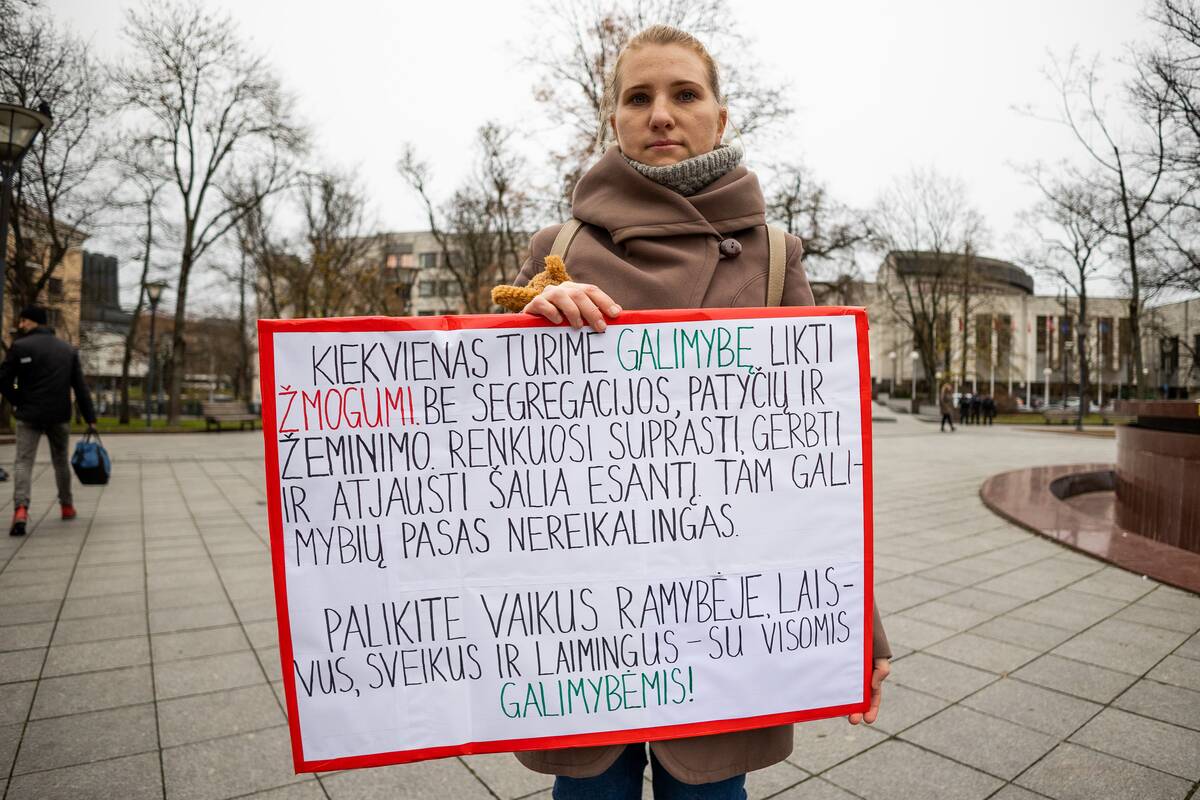 KIEKVIENAS TURIME GALIMYBĘ LIKTI
ŽMOGUMI. BE SEGREGACIJOS, PATYČIŲ IR
ŽEMINIMO. RENKUOSI SUPRASTI, GERBTI
IR ATJAUSTI ŠALIA ESANTĮ. TAM GALI-
MYBIŲ PASAS NEREIKALINGAS.
PALIKITE VAIKUS RAMYBĖJE, LAIS-
VUS, SVEIKUS IR LAIMINGUS - SU VISOMIS
GALIMYBĖMIS!